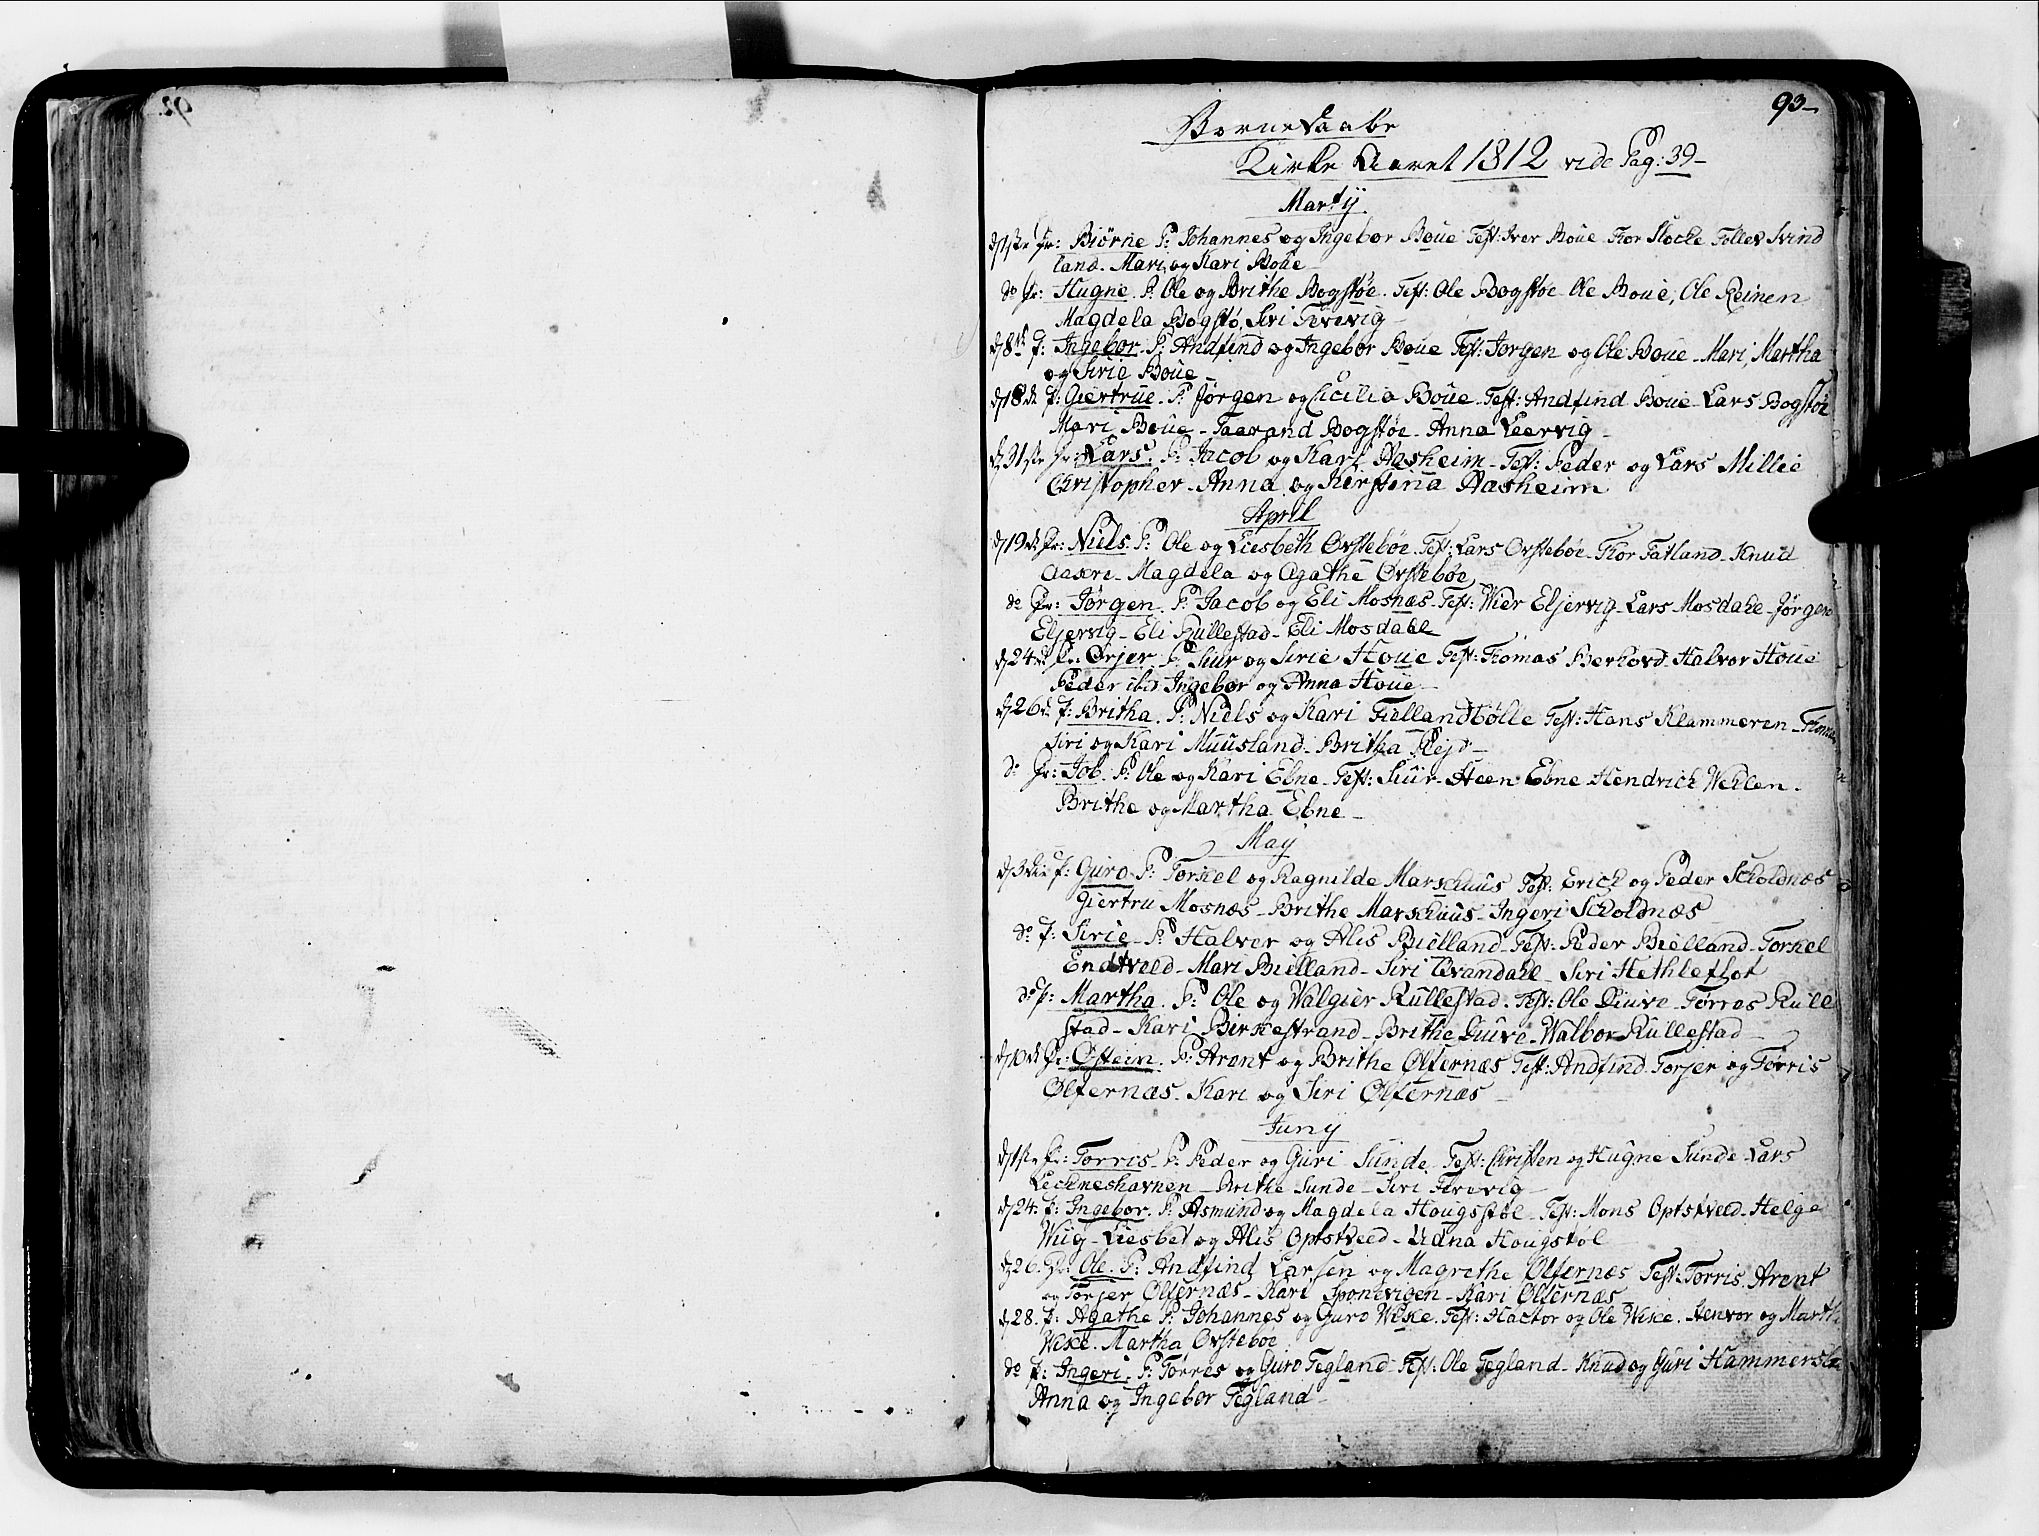 92.
93-
Børne Daabe
Kirke Aaret 1812 vide Pag: 39-
Marty
d 1ste Dr: Biörne P: Johannes og Ingebor Boue Test: Iver Boue Thor Stocke Tollev Svind
land. Mari og Kari Boue
do Dr: Hugne. P: Ole og Brithe Bogstøe. Test: Ole Bogstøe Ole Boue, Ole Reinen
Magdela Bogstø, Siri Tirevig
d 8de P: Ingebor P: Andfind og Ingebor Boue Test: Jørgen og Ole Boue - Mari, Martha
og Sirie Boue
d 18de P: Giertrue. P: Jørgen og Cicilia Boue. Test: Andfind Boue Lars Bogstøe
Mari Boue - Taarand Bogstøe - Anna Leervig
d 31ste Dr: Lars. P: Jacob og Kari Aasheim. Test: Peder og Lars Millie
Christopher - Anna og Kirstina Aasheim
April
d 19de Dr: Niels. P: Ole og Liesbeth Ørstebøe. Test: Lars Ørstebøe. Thor Tatland Knud
Aakre - Magdela og Agathe Ørstebøe
do Dr: Jørgen. P: Jacob og Eli Mosnæs. Test: Wier Eljervig - Lars Mosdahl - Jørgen
Eljervig - Eli Rullestad - Eli Mosdahl
d 24de Dr: Ørjer P: Siur og Sirie Houe Test: Thomas Berhovd Halvor Houe
Peder ibid Ingebor og Anna Houe
d 26de P: Britha. P: Niels og Kari Tiellandbølle Test: Hans Klammeren - Thomas
Siri og Kari Muusland - Britha Hejo
do Dr: Job. P: Ole og Kari Ebne - Test: Siur - Steen Ebne Hendrich Wehlen.
Brithe og Martha Ebne
May
d 3die P: Guro P: Torkel og Ragnilde Marschuus Test: Erich og Peder Scholdnæs
Giertru Mosnæs - Brithe Marschuus - Ingeri Scholdnæs
do P: Sirie P: Halver og Alis Bielland Test: Peder Bielland - Torkel
Endtveed - Mari Bielland - Siri Qvandahl - Siri Hethleflot
do P: Martha. P: Ole og Walgier Rullestad. Test: Ole Diuve - Tørres Rulle
stad - Kari Birkestrand - Brithe Diuve - Walbor Rullestad
d 10de Dr: Østein. P: Arent og Brithe Ølfernæs Test: Andfind. Torjer og Tørris
Ølfernæs. Kari og Siri Ølfernæs
Juny
d 1ste Dr: Torris. P: Peder og Guri Sunde Test: Christen og Hugne Sunde Lars
Leckneshavnen - Brithe Sunde - Siri Tirevig
d 24. P: Ingebor. P: Asmund og Magdela Hougstøl - Test: Mons Optstveed. Helge
Wiig - Liesbet og Alis Optstveed - Udna Hougstøl
d 26. Dr: Ole. P: Andfind Larsen og Magrethe Ølfernæs Test: Torris. Arent
og Torjer Ølfernæs - Kari Sponevigen - Kari Ølfernæs
d 28. P: Agathe P: Johannes og Guro Wike. Test: Hactor og Ole Wike. Stenvor og Martha
Wike. Martha Ørstebøe
do P: Ingeri. P: Tørres og Guro Tegland Test: Ole Tegland. Knud og Guri Hammersl
Anna og Ingebor Tegland